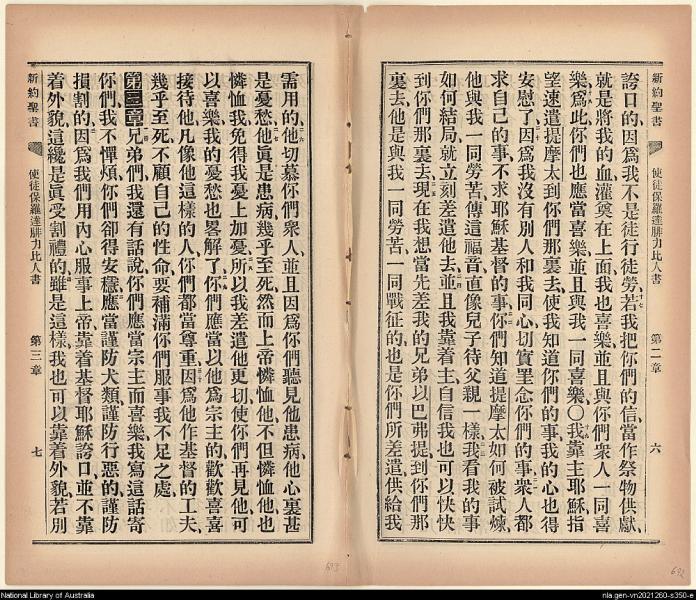 新約聖書
使徒保羅達腓力比人書
第二章
六
誇口的因爲我不是徒行徒勞若我把你們的信當作祭物供獻
就是將我的血灌奠在上面我也喜樂並且與你們衆人一同喜
樂爲此你們也應當喜樂並且與我一同喜樂〇我靠主耶穌指
望速遣提摩太到你們那裏去使我知道你們的事我的心也得
安慰了因爲我沒有別人和我同心切實罣念你們的事衆人都
求自己的事不求耶穌基督的事你們知道提摩太如何被試煉
他與我一同勞苦傳這福音直像兒子待父親一樣我看我的事
如何結局就立刻差遣他去並且我靠着主自信我也可以快快
到你們那裏去現在我想當先差我的兄弟以巴弗提到你們那
裏去他是與我一同勞苦一同戰征的也是你們所差遣供給我
需用的他切慕你們衆人並且因爲你們聽見他患病他心裏甚
是憂愁他眞是患病幾乎至死然而上帝憐恤他不但憐恤他也
憐恤我免得我憂上加憂所以我差遣他更切使你們再見他可
以喜樂我的憂愁也畧解了你們應當以他爲宗主的歡歡喜喜
接待他凡像他這樣的人你們都當尊重因爲他作基督的工夫
幾乎至死不顧自己的性命要補滿你們服事我不足之處
第三章兄弟們我還有話說你們應當宗主而喜樂我寫這話寄
你們我不憚煩你們卻得安穩應當謹防犬類謹防行惡的謹防
損割的因爲我們用內心服事上帝靠着基督耶穌誇口並不靠
着外貌這纔是眞受割禮的雖是這樣我也可以靠着外貌若別
新約聖書
使徒保羅達腓力比人書
第三章
七
National Library of Australia
nla.gen-vn2021260-s350-e